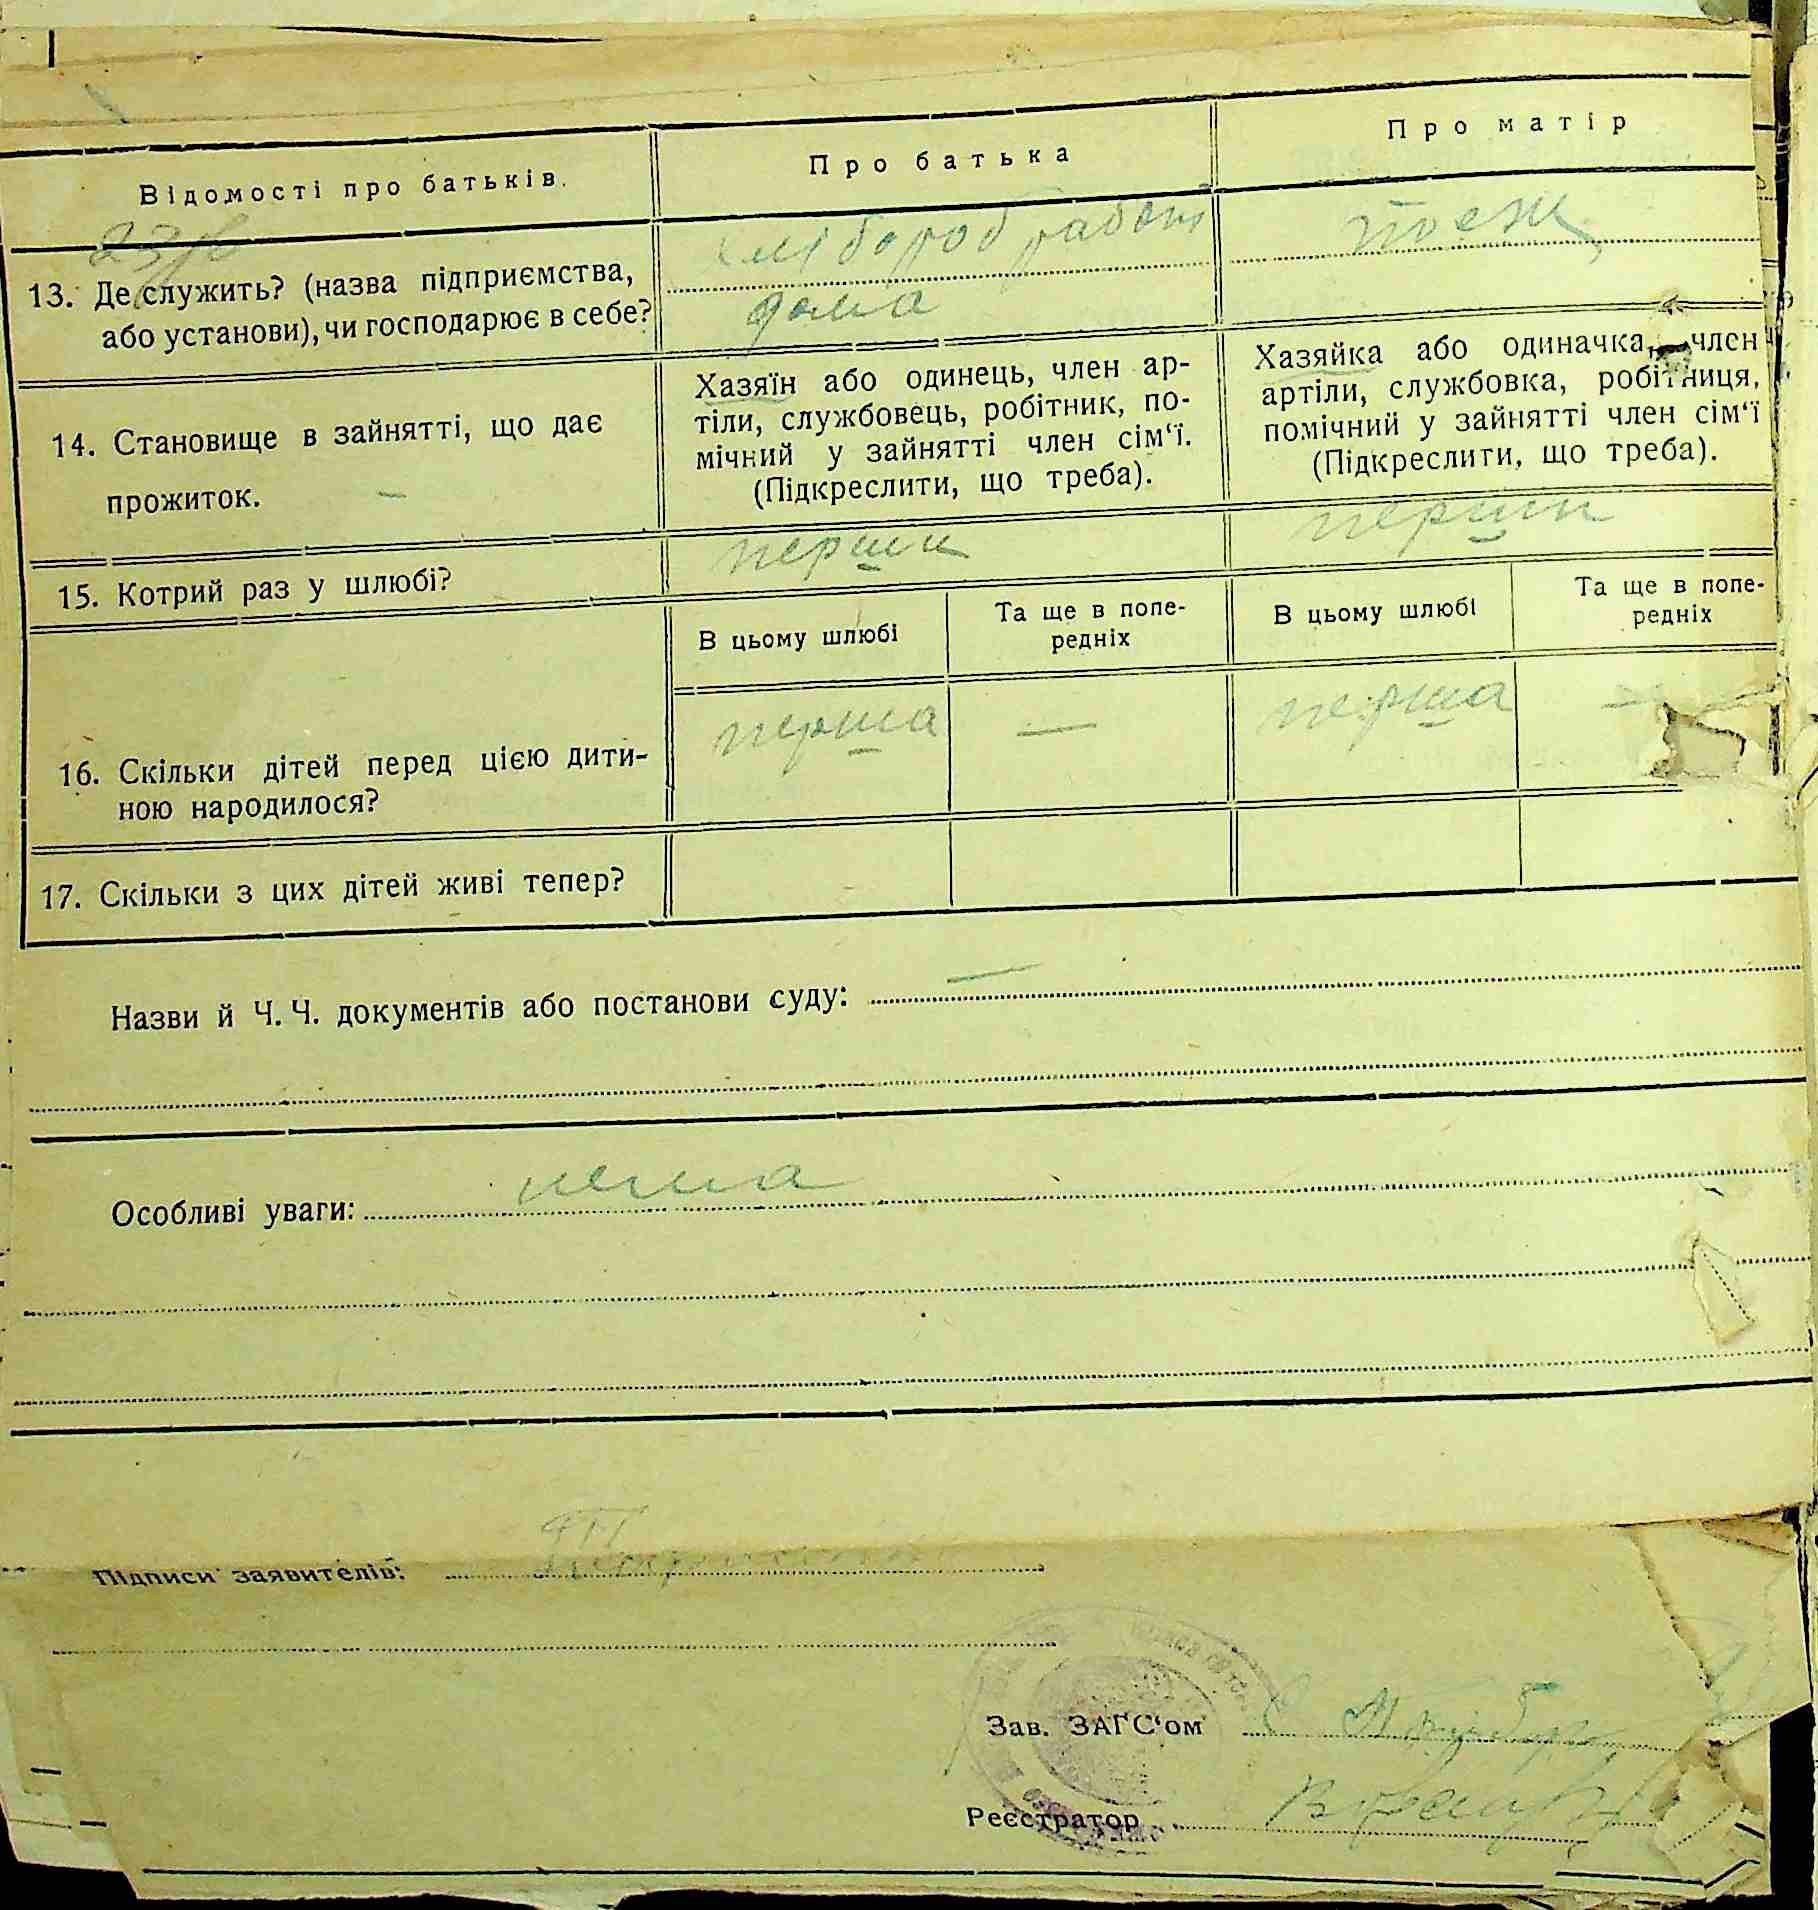 Відомості про батьків.
Про батька
Про матір
13. Де служить? (назва підприємства,
або установи), чи господарює в себе?
хлібороб работ
дома
тоеж
14. Становище в зайнятті, що дає
прожиток. —
Хазяїн або одинець, член ар-
тіли, службовець, робітник, по-
мічний у зайнятті член сім‘ї.
(Підкреслити, що треба).
Хазяйка або одиначка, член
артіли, службовка, робітниця,
помічний у зайнятті член сім‘ї
(Підкреслити, що треба).
15. Котрий раз у шлюбі?
перший
перший
В цьому шлюбі
Та ще в попе-
редніх
В цьому шлюбі
Та ще в попе-
редніх
16. Скільки дітей перед цією дити-
ною народилося?
перша
—
перша
—
17. Скільки з цих дітей живі тепер?
Назви й Ч. Ч. документів або постанови суду: —
Особливі уваги: нема
Підписи заявителів:
Зав. ЗАГС‘ом
Реєстратор